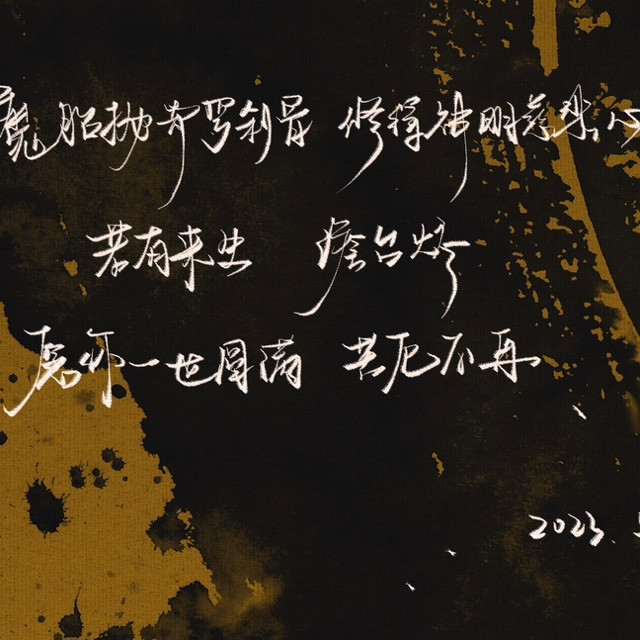 魔胎抛弃罗刹骨 修得神明慈悲心
若有来生 澹台烬
愿你一世圆满 苦厄不再
2023.